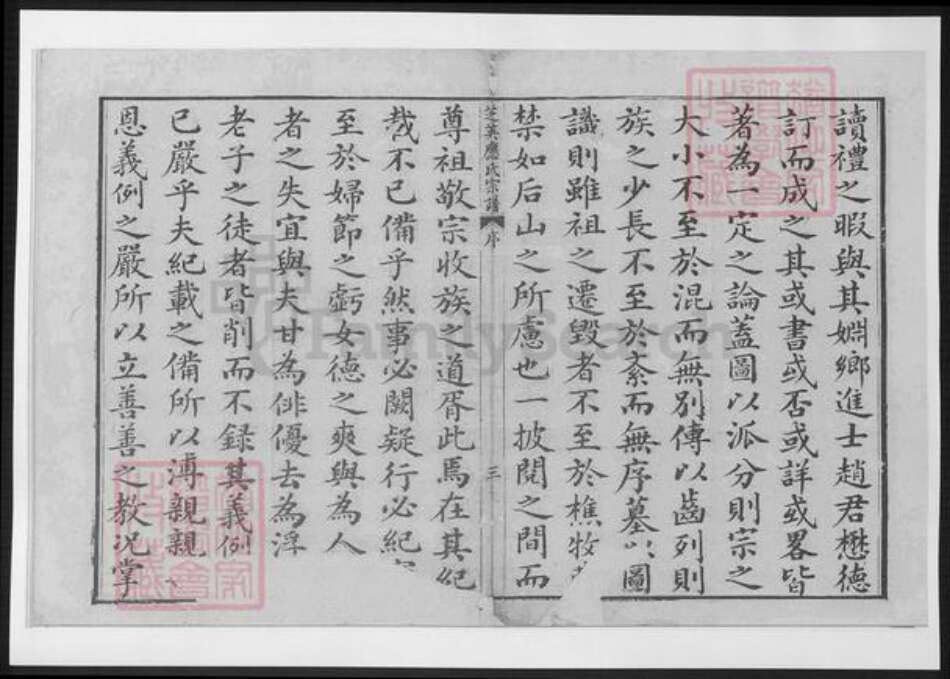 讀禮之暇與其婣鄉進士趙君懋德
訂而成之其或書或否或詳或畧皆
著為一定之論蓋圖以派分則宗之
大小不至於混而無別傳以齒列則
族之少長不至於紊而無序墓以圖
識則雖祖之遷毀者不至於樵牧
禁如后山之所慮也一披閱之間而
芝英應氏宗譜
序
三
尊祖敬宗收族之道胥此焉在其紀
載不已備乎然事必闕疑行必紀
至於婦節之虧女德之爽與為人
者之失宜與夫甘為俳優去為浮
老子之徒者皆削而不録其義例
已嚴乎夫紀載之備所以溥親親
恩義例之嚴所以立善善之教況掌
FamilySearch